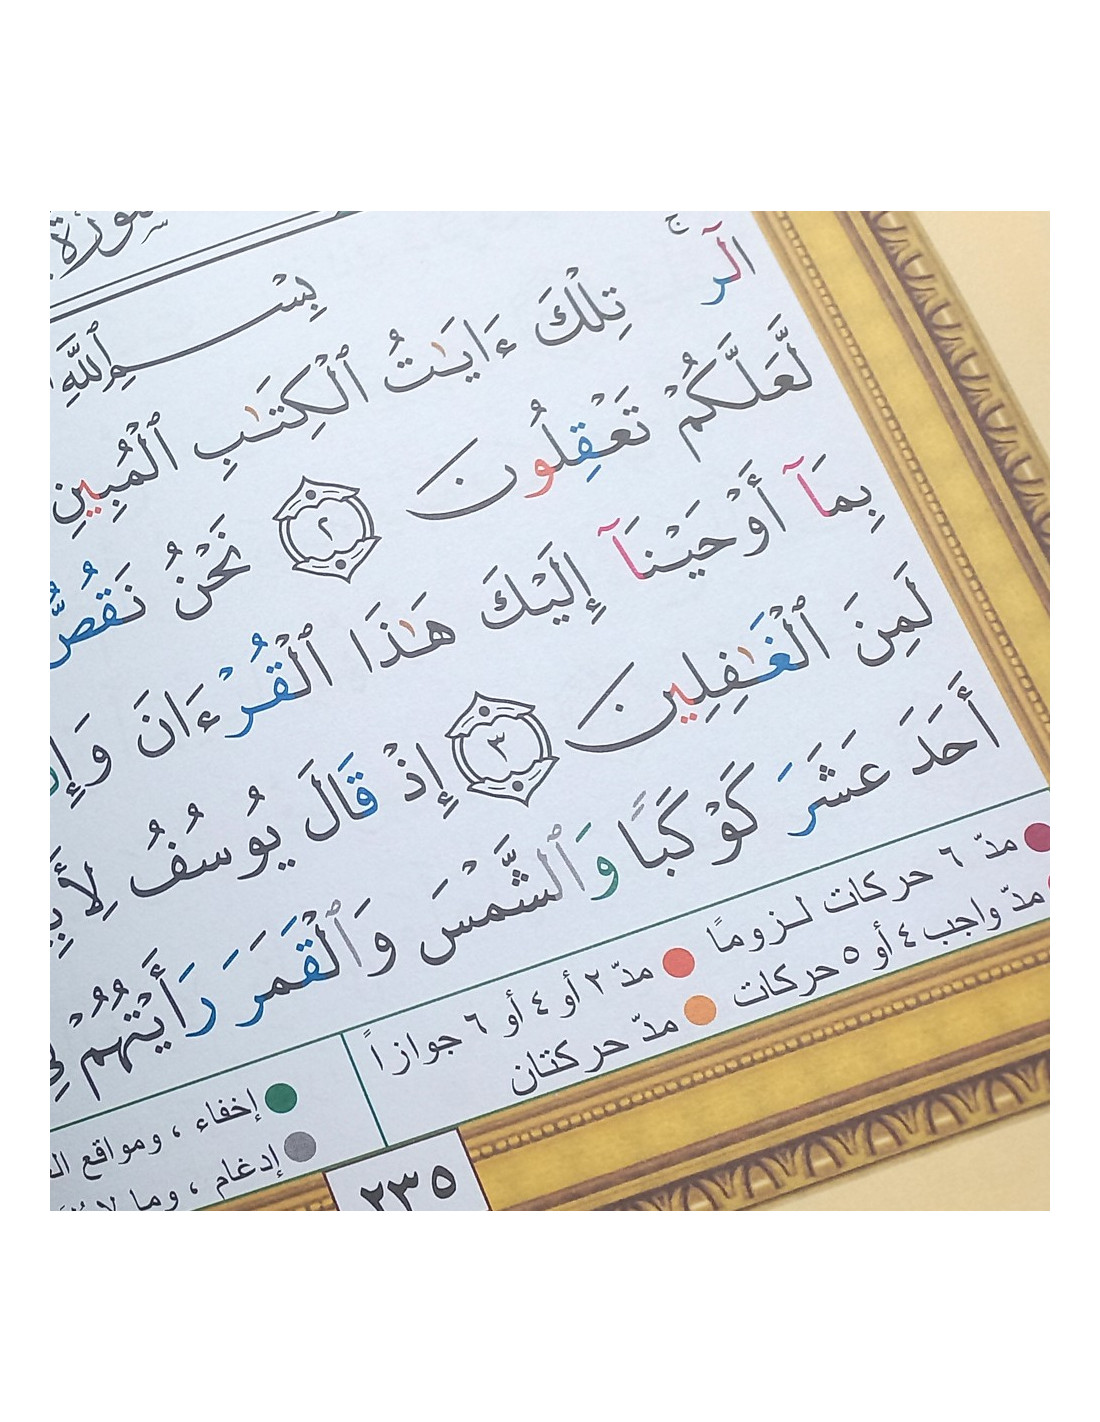 سورة
بِسْمِ ٱللَّهِ
الٓر ۚ تِلْكَ ءَايَٰتُ ٱلْكِتَٰبِ ٱلْمُبِينِ
لَّعَلَّكُمْ تَعْقِلُونَ ٢ نَحْنُ نَقُصُّ
بِمَآ أَوْحَيْنَآ إِلَيْكَ هَٰذَا ٱلْقُرْءَانَ وَإِن
لَمِنَ ٱلْغَٰفِلِينَ ٣ إِذْ قَالَ يُوسُفُ لِأَبِي
أَحَدَ عَشَرَ كَوْكَبًا وَٱلشَّمْسَ وَٱلْقَمَرَ رَأَيْتُهُمْ لِي
مدّ ٦ حركات لـزومًا مدّ ٢ أو ٤ أو ٦ جوازاً
مدّ واجب ٤ أو ٥ حركات مدّ حركتان
إخفاء ، ومواقع
إدغام ، وما لا
٢٣٥